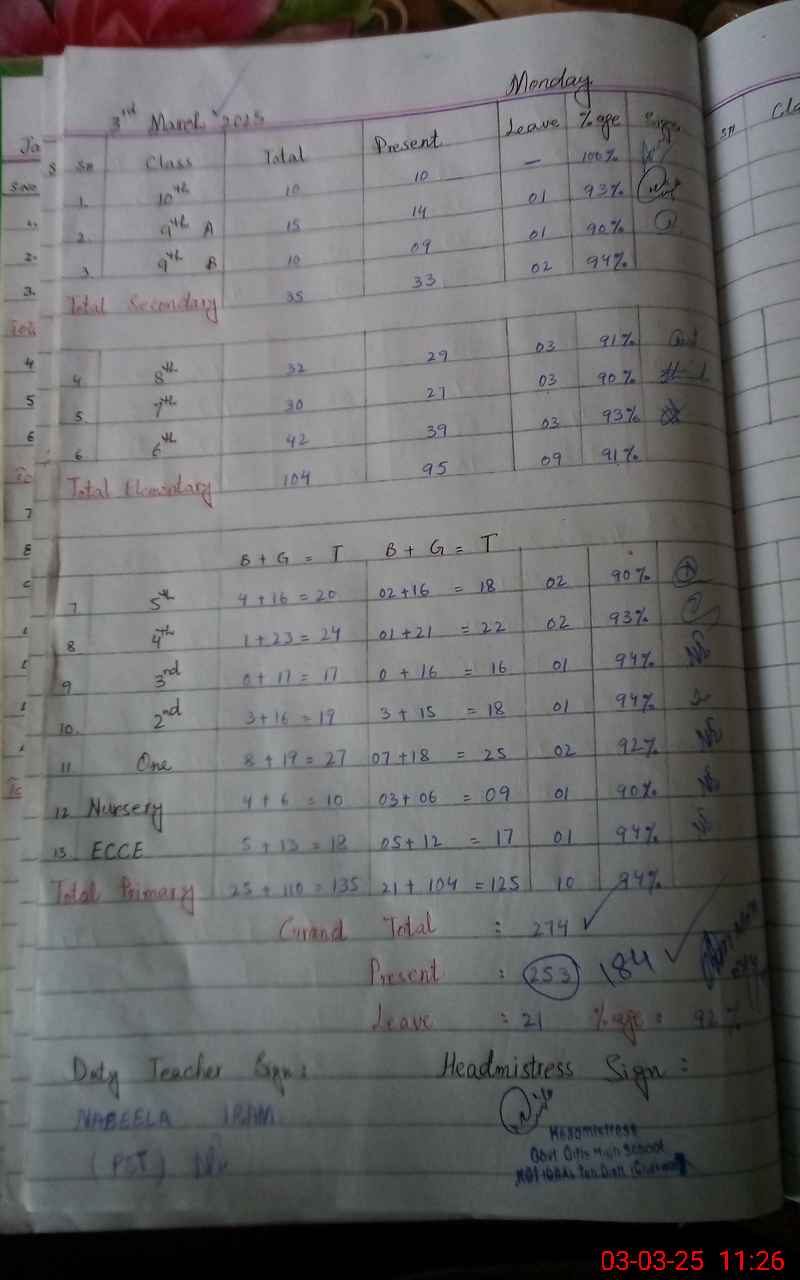 Monday
3rd March 2025
Sr# Class Total Present Leave %age Sign
1. 10th 10 10 — 100%
2. 9th A 15 14 01 93%
3. 9th B 10 09 01 90%
Total Secondary 35 33 02 94%
4 8th 32 29 03 91%
5. 7th 30 27 03 90%
6 6th 42 39 03 93%
Total Elementary 104 95 09 91%
B + G = T B + G = T
7 5th 4+16=20 02+16 = 18 02 90%
8 4th 1+23=24 01+21 = 22 02 93%
9 3rd 0+17=17 0 + 16 = 16 01 94%
10. 2nd 3+16=19 3 + 15 = 18 01 94%
11 One 8+19=27 07+18 = 25 02 92%
12 Nursery 4+6=10 03+06 = 09 01 90%
13. ECCE 5+13=18 05+12 = 17 01 94%
Total Primary 25+110=135 21+104=125 10 94%
Grand Total : 274
Present : 253 184
Leave : 21 %age : 92%
Duty Teacher Sign: Headmistress Sign:
NABEELA IRAM
(PST)
Headmistress
Govt Girls High School
03-03-25 11:26